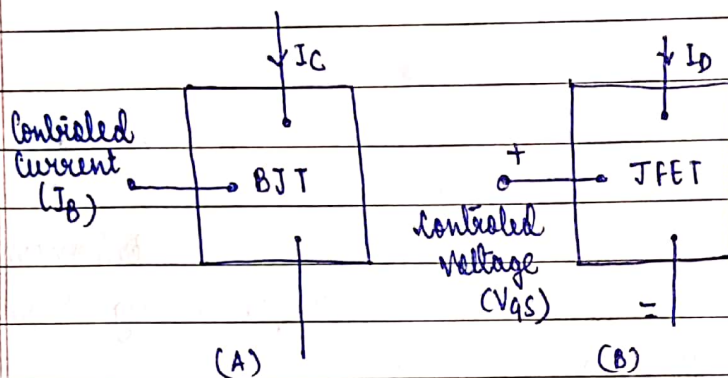 IC
ID
Controled
Current
(IB)
BJT
+
JFET
Controled
Voltage
(VGS)
-
(A)
(B)